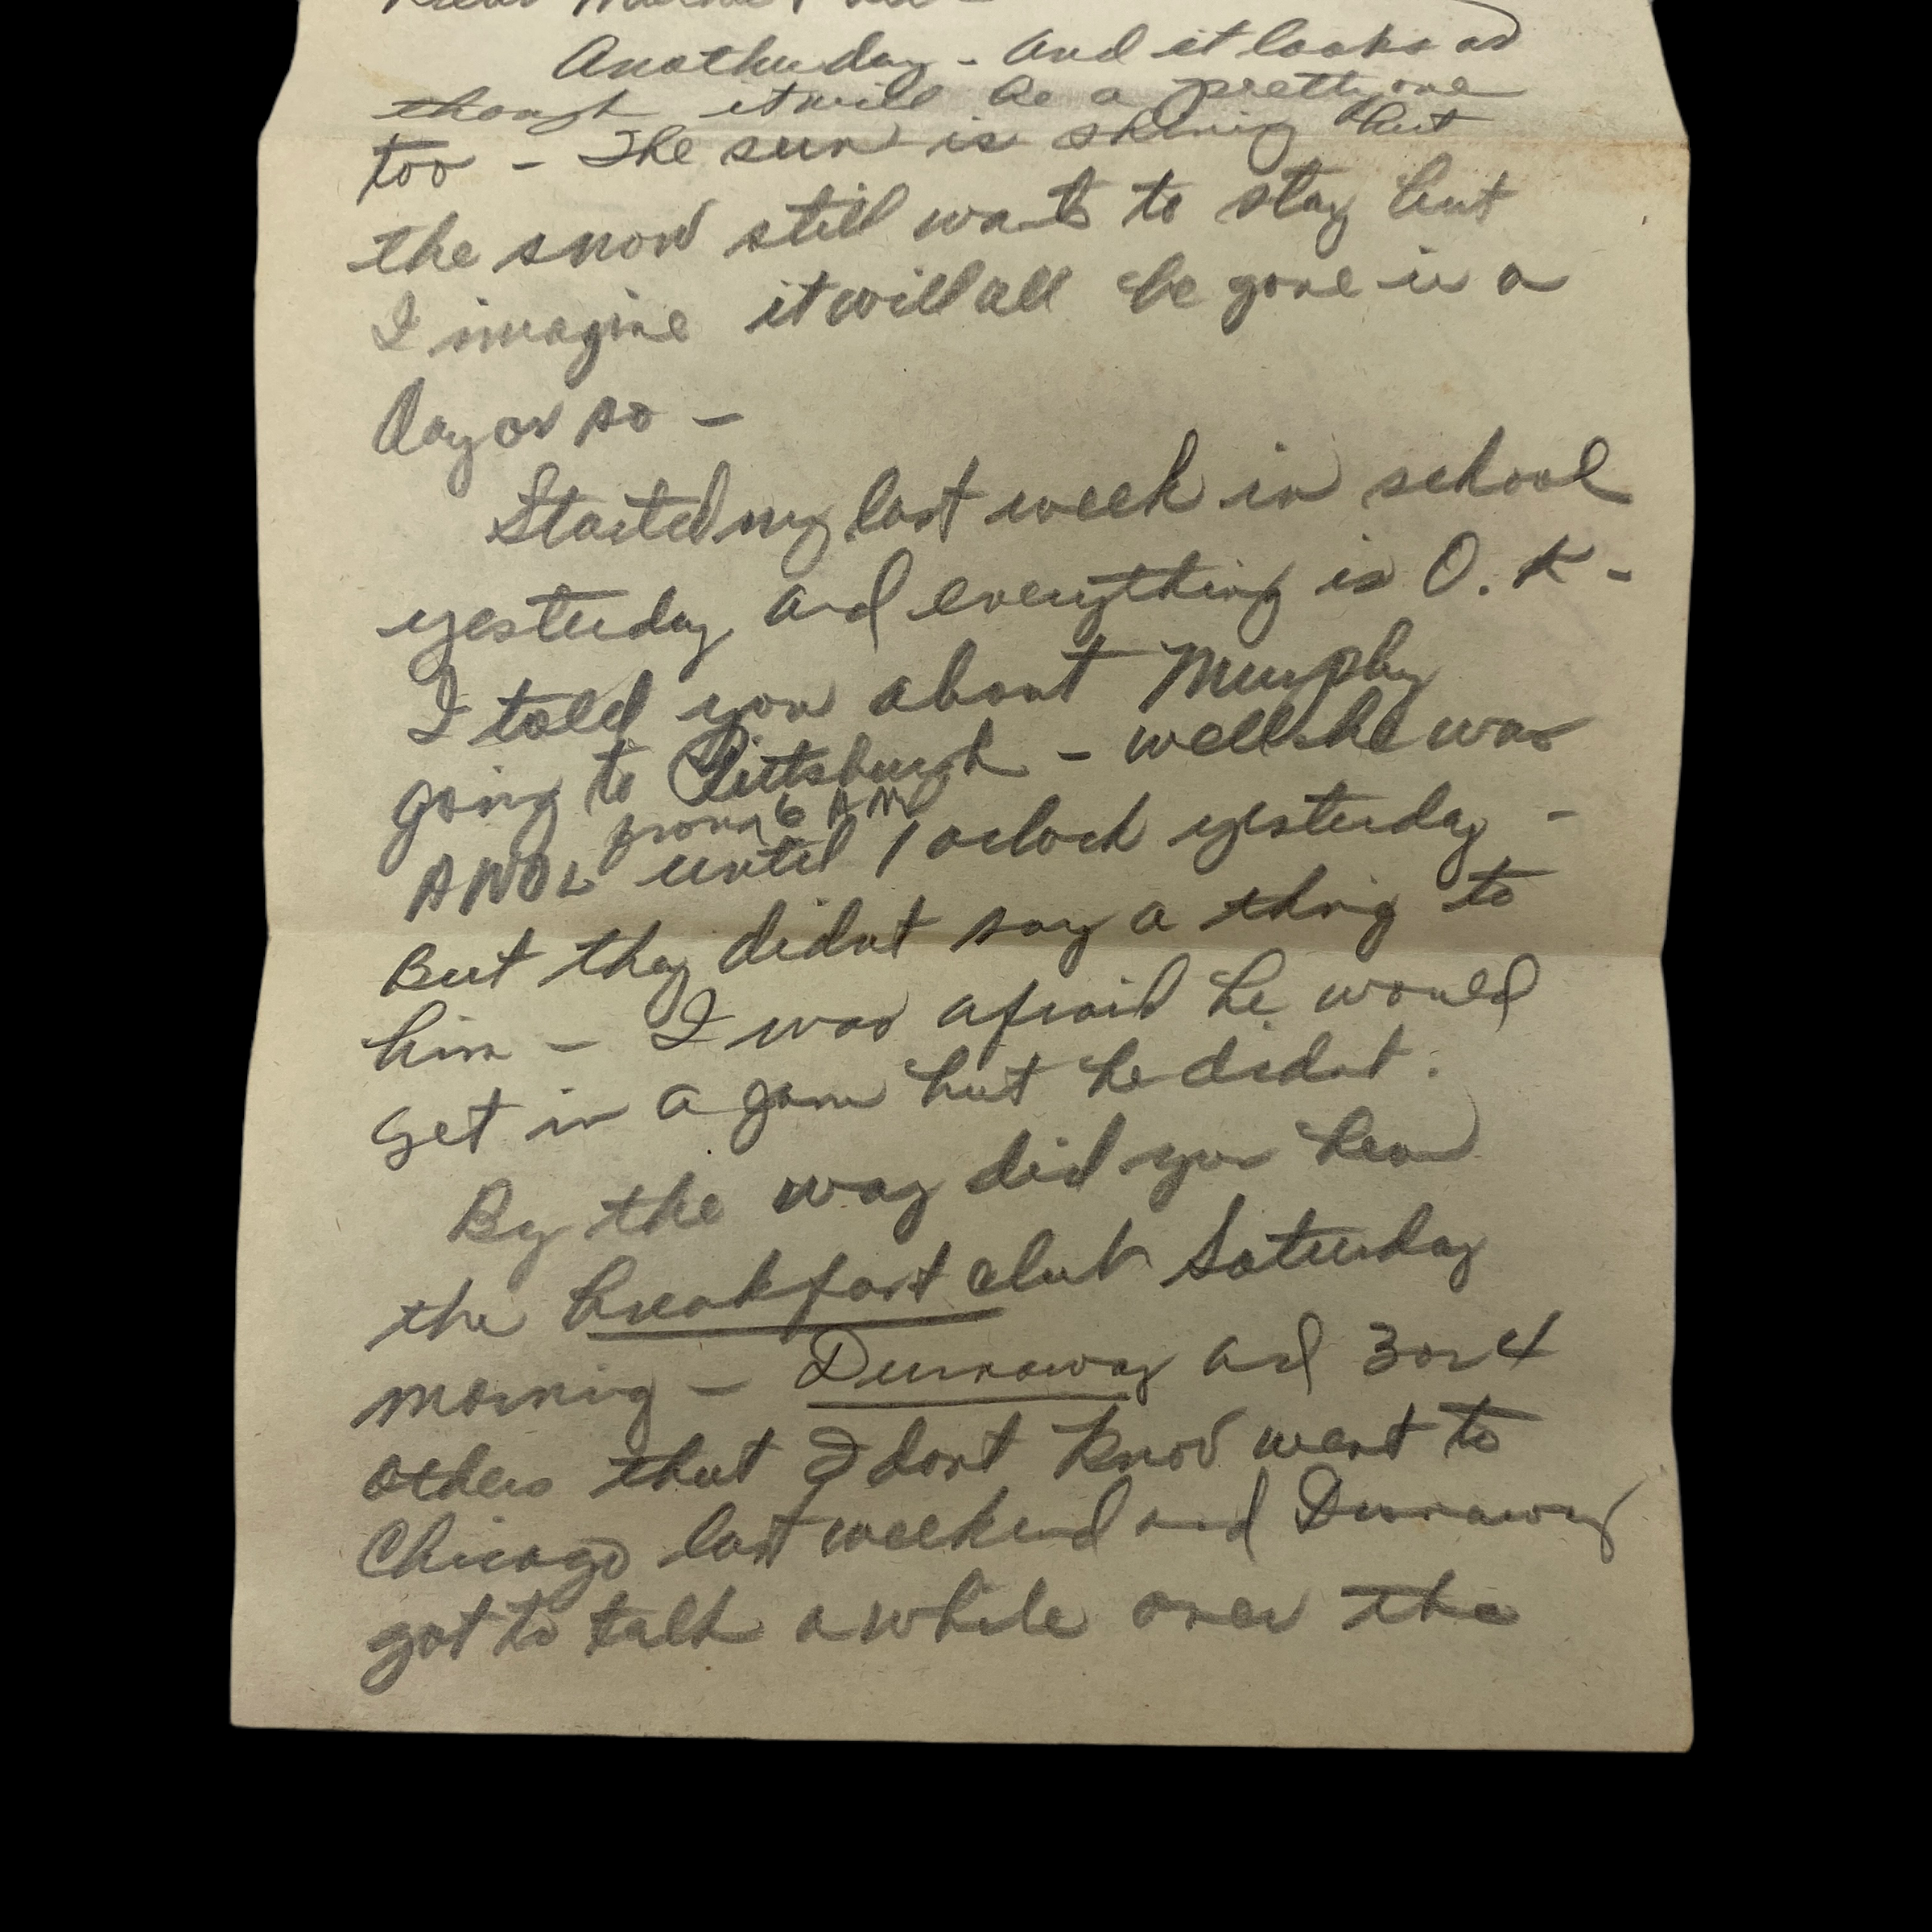 Another day - And it looks as
though it will be a pretty one
too - The sun is shining but
the snow still wants to stay but
I imagine it will all be gone in a
day or so -
Started my last week in school
yesterday and everything is O.K -
I told you about Murphy
going to Pittsburgh - well he was
from 6 AM
AWOL until 1 oclock yesterday -
But they didnt say a thing to
him - I was afraid he would
get in a jam but he didnt.
By the way did you hear
the breakfast club Saturday
morning - Dunaway and 3 or 4
others that I dont know went to
Chicago last weekend and Dunaway
got to talk awhile over the